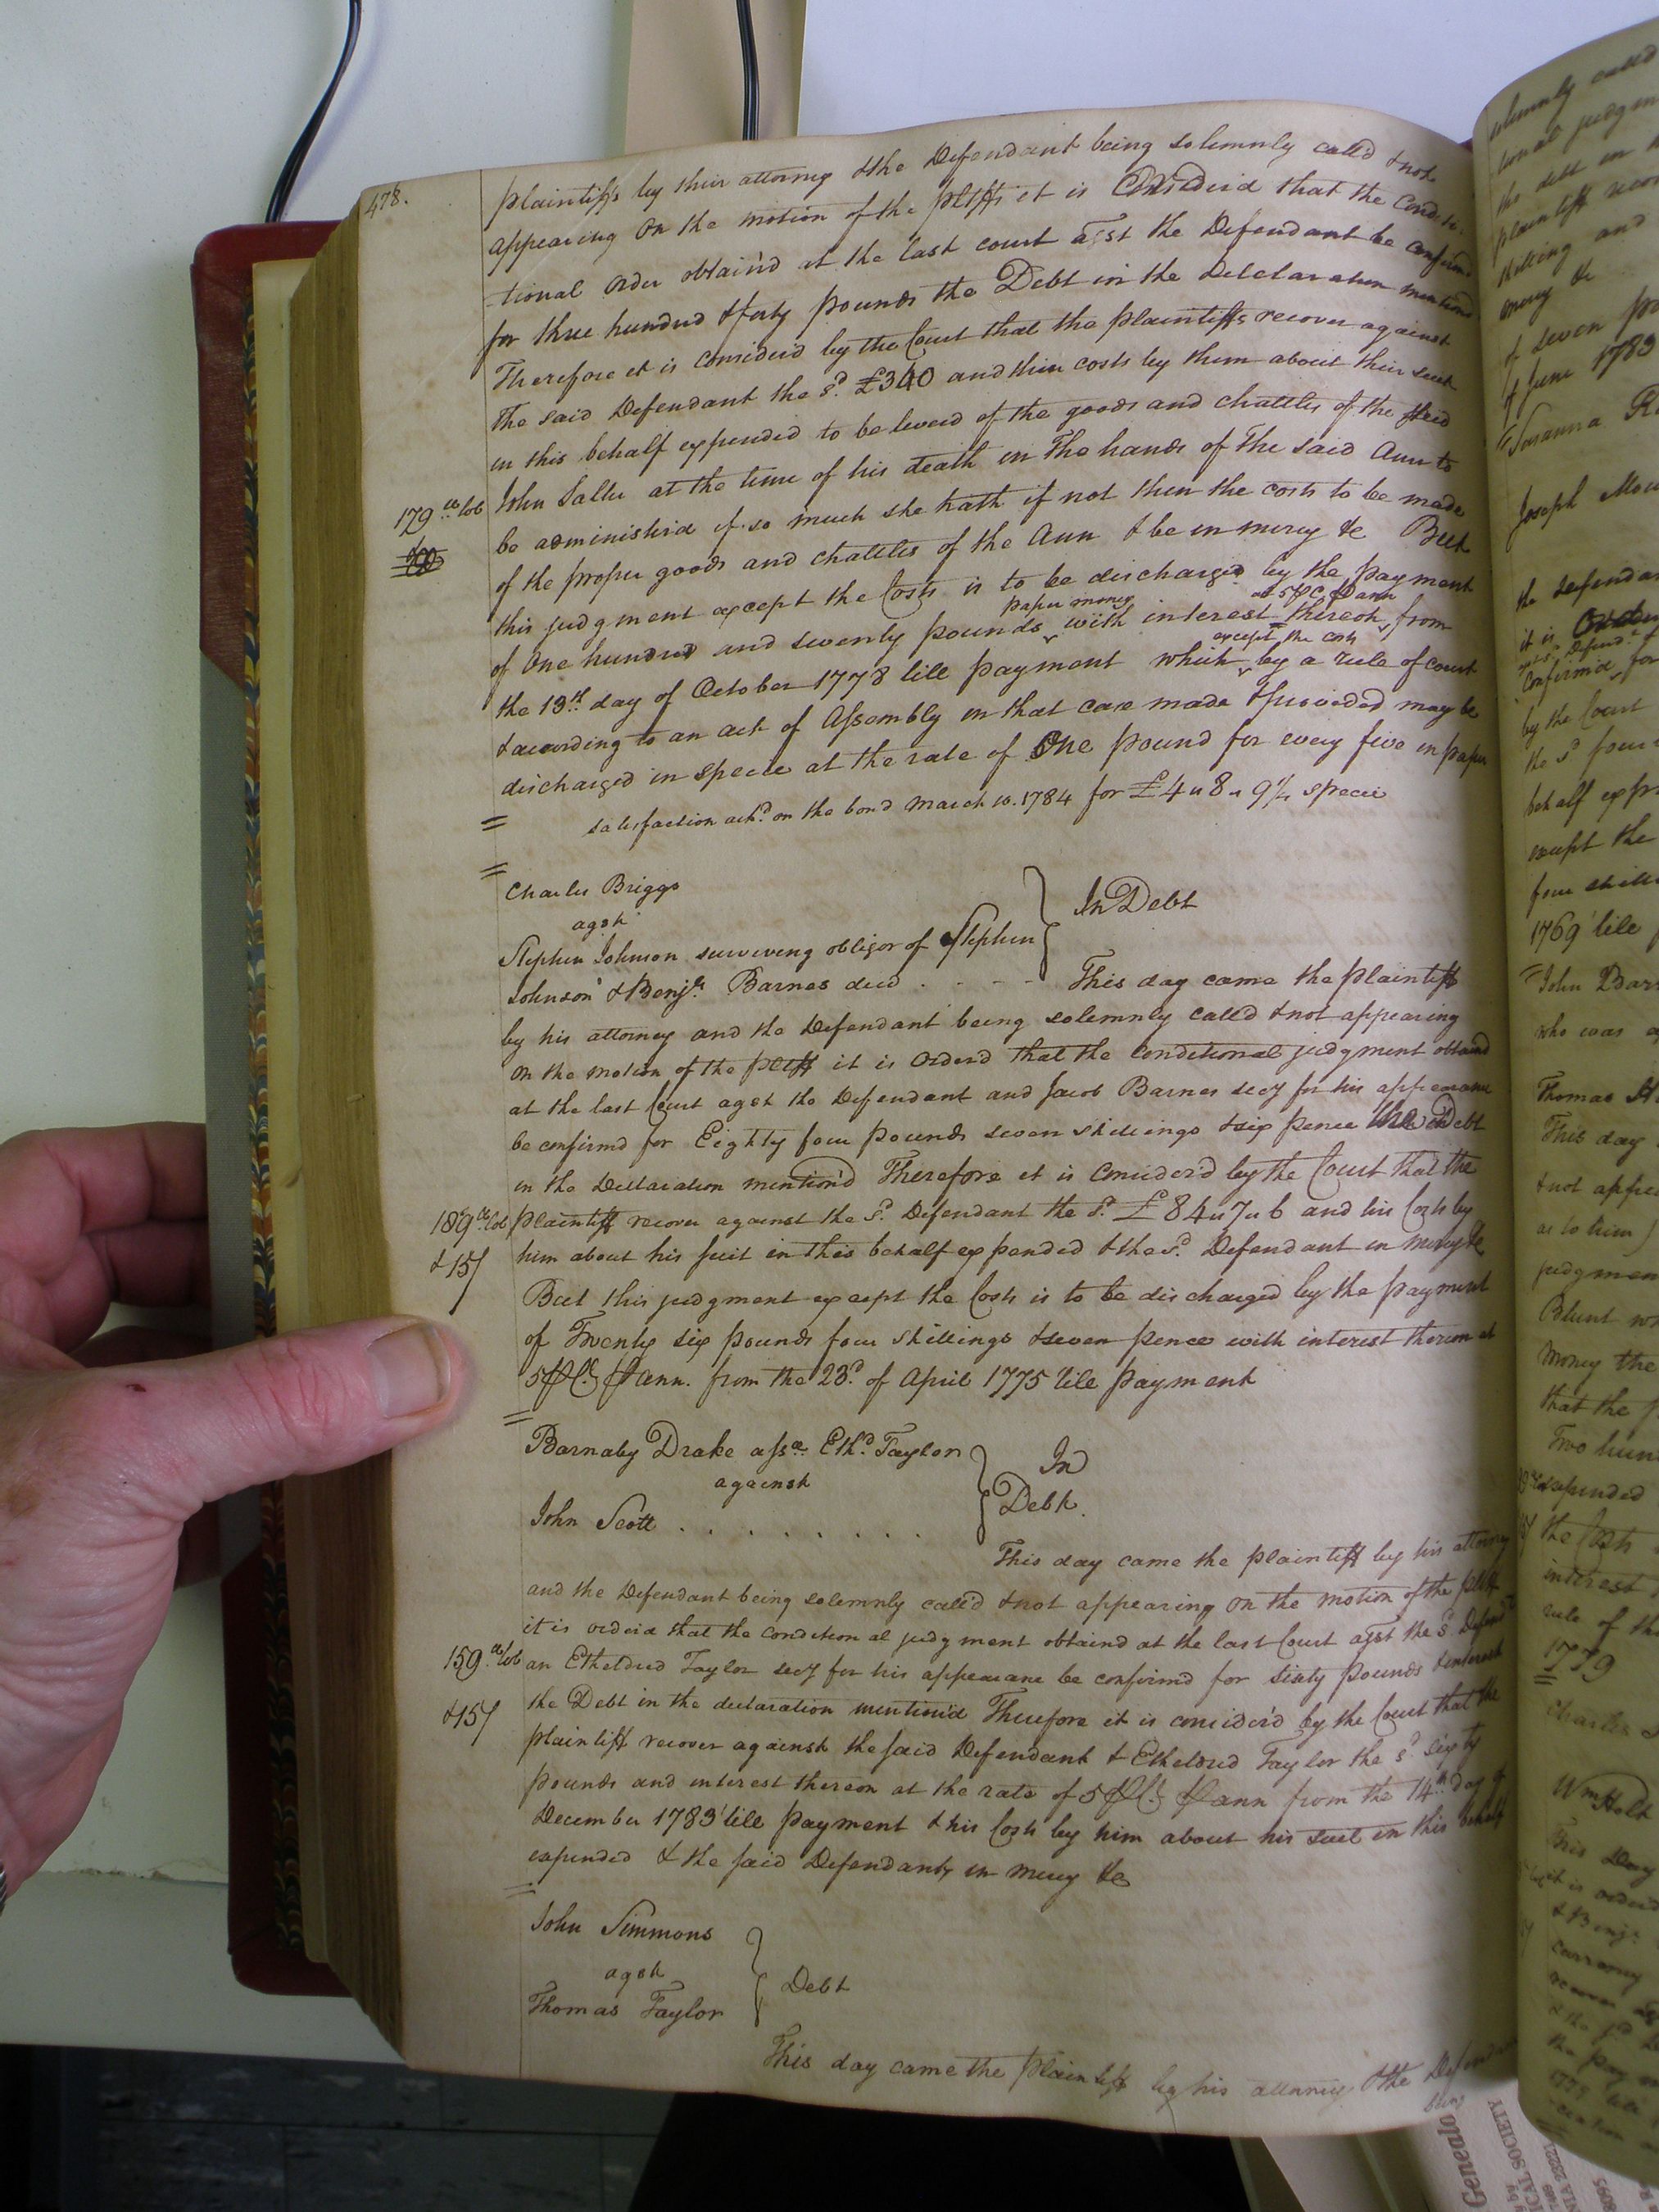 478.
plaintiffs by their attorney & the Defendant being solemnly calld & not
appearing on the motion of the pltffs it is Considerd that the Condi-
-tional order obtain'd at the last court agst the Defendant be confirmd
for three hundred & forty pounds the Debt in the declaration mentiond
Therefore it is considerd by the Court that the plaintiffs recover against
the said Defendant the sd. £340 and their costs by them about their suit
in this behalf expended to be levied of the goods and chattles of the said
John Salle at the time of his death in the hands of the said Ann to
179 lb tob
be administerd if so much she hath if not then the costs to be made
of the proper goods and chattles of the Ann & be in mercy &c But
this judgment except the Costs is to be discharged by the payment
paper money at 5 P Ct P ann
of One hundred and seventy pounds with interest thereon from
except the costs
the 13th day of October 1778 till payment which by a rule of court
& according to an act of Assembly in that case made & provided may be
discharged in specie at the rate of One pound for every five in paper
satisfaction ackd. on the bond March 10. 1784 for £4 " 8 " 9 1/4 specie
Charles Briggs
agst
Stephen Johnson surviving obligor of Stephen
Johnson & Benja. Barnes decd . - - -
In Debt
This day came the plaintiff
by his attorney and the Defendant being solemnly call'd & not appearing
on the motion of the pltff it is orderd that the conditional judgment obtaind
at the last Court agst the Defendant and Jacob Barnes secy for his appearance
be confirmd for Eighty four pounds seven shillings & six pence the Debt
in the declaration mention'd Therefore it is consider'd by the Court that the
189 lb tob
plaintiff recover against the sd. Defendant the sd. £84 " 7 " 6 and his Costs by
& 15/
him about his suit in this behalf expended & the sd. Defendant in mercy &c
But this judgment except the Costs is to be discharged by the payment
of Twenty six pounds four shillings & seven pence with interest thereon at
5 P Ct P ann. from the 23d. of April 1775 till payment
Barnaby Drake asse. Ethd. Taylor
against
John Scott . . . . . . . . .
In
Debt.
This day came the plaintiff by his attorney
and the Defendant being solemnly call'd & not appearing on the motion of the pltff
it is orderd that the conditional judgment obtaind at the last Court agst the sd. Defendt
159 lb tob
an Etheldred Taylor secy for his appearance be confirmd for sixty pounds & interest
& 15/
the Debt in the declaration mention'd Therefore it is consider'd by the Court that the
plaintiff recover against the said Defendant & Etheldred Taylor the sd. sixty
pounds and interest thereon at the rate of 5 P Ct P ann from the 14th day of
December 1783 till payment & his Costs by him about his suit in this behalf
expended & the said Defendants in mercy &c
John Simmons
agst
Thomas Taylor
Debt
This day came the plaintiff by his attorney & the Defendant
being
solemnly called
the debt in
plaintiff recov
shilling and
mercy &c
of seven po
of June 1783
Susanna
Joseph
the defendan
it is Order
confirmd for
by the Court
the sd four
behalf exp
except the
four shill
1769 till
John Bar
who was a
Thomas
This day
& not appea
as to him)
judgmen
Blunt
Money the
that the p
Two hun
expended
the Costs
interest
rule of the
1779
Charles
Wm Holt
This day
it is orderd
& Benja.
Genealo
ICAL SOCIETY